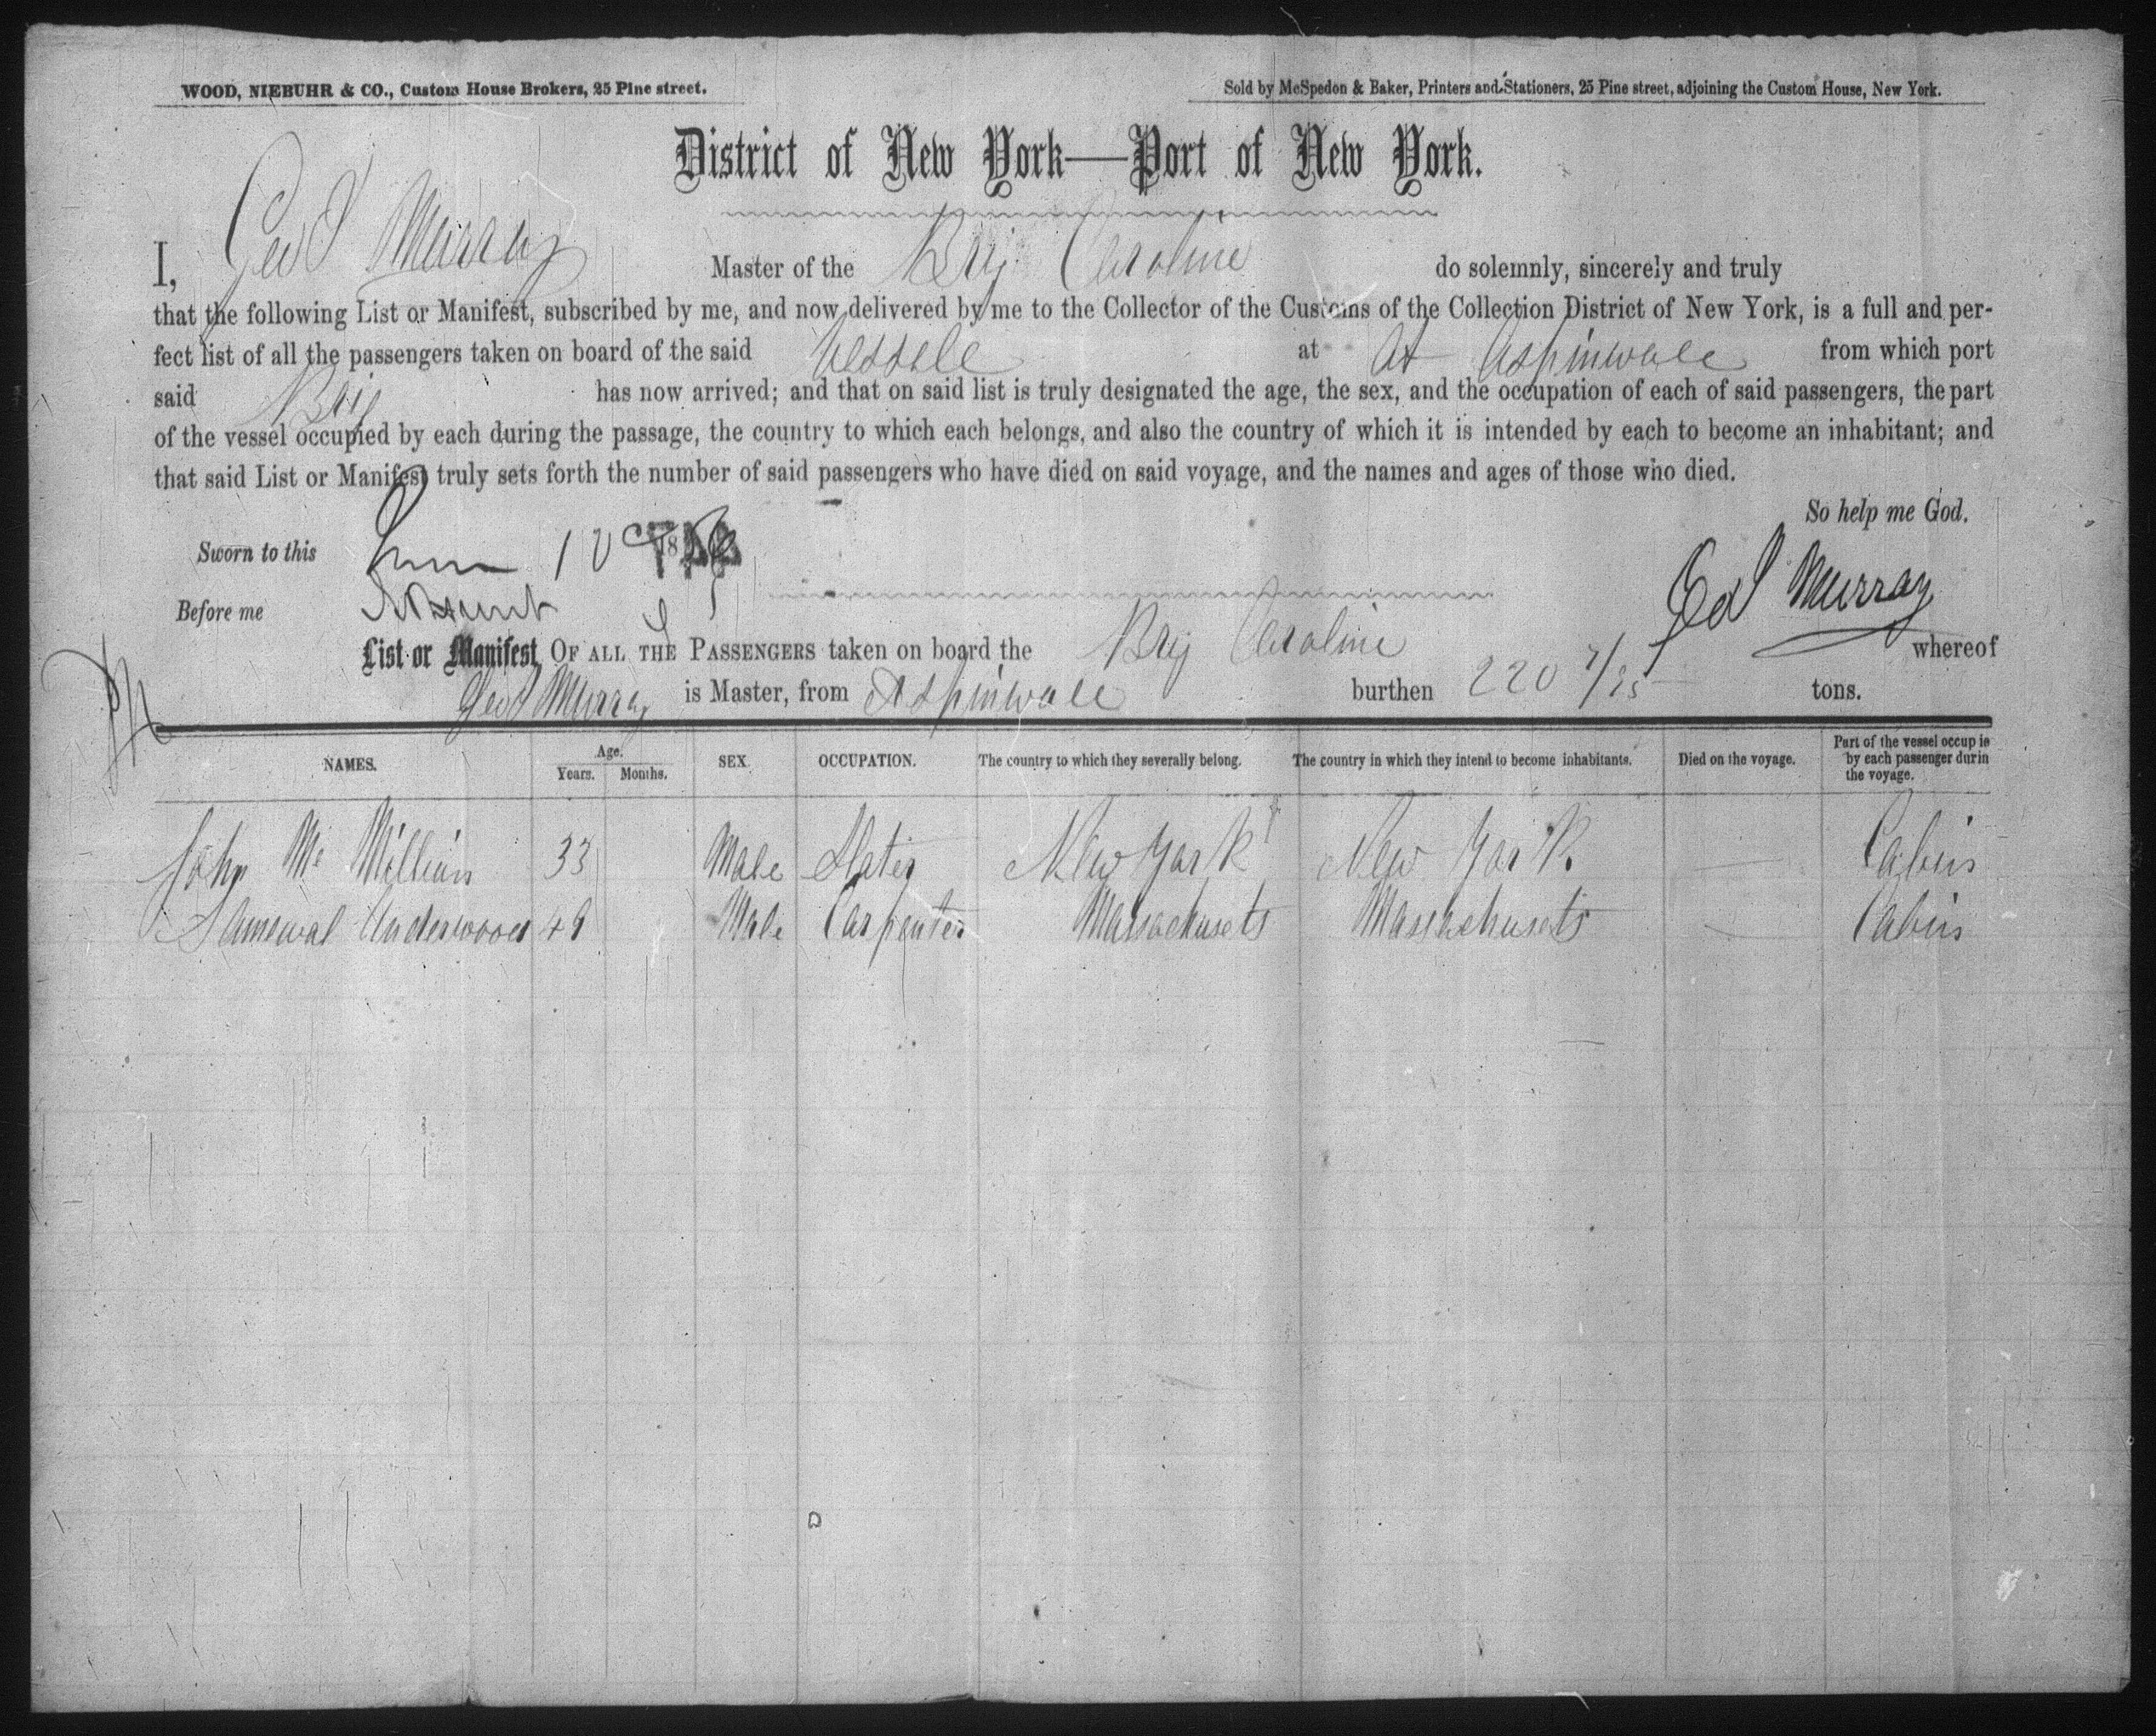 WOOD, NIEBUHR & CO., Custom House Brokers, 25 Pine street.
Sold by McSpedon & Baker, Printers and Stationers, 25 Pine street, adjoining the Custom House, New York.
District of New York—Port of New York.
I, Geo S Murray Master of the Brig Caroline do solemnly, sincerely and truly
that the following List or Manifest, subscribed by me, and now delivered by me to the Collector of the Customs of the Collection District of New York, is a full and per-
fect list of all the passengers taken on board of the said Vessele at At Aspinwall from which port
said Brig has now arrived; and that on said list is truly designated the age, the sex, and the occupation of each of said passengers, the part
of the vessel occupied by each during the passage, the country to which each belongs, and also the country of which it is intended by each to become an inhabitant; and
that said List or Manifest truly sets forth the number of said passengers who have died on said voyage, and the names and ages of those who died.
So help me God.
Sworn to this 18
Before me
Geo S Murray
List or Manifest OF ALL THE PASSENGERS taken on board the Brig Caroline whereof
Geo S Murray is Master, from Aspinwall burthen 220 tons.
NAMES. Age. Years. Months. SEX. OCCUPATION. The country to which they severally belong. The country in which they intend to become inhabitants. Died on the voyage. Part of the vessel occupie by each passenger durin the voyage.
John Mc Millian 33 Male Slater New York New York — Cabin
Underwood 49 Male Carpenter Massachusets Massachusets — Cabin